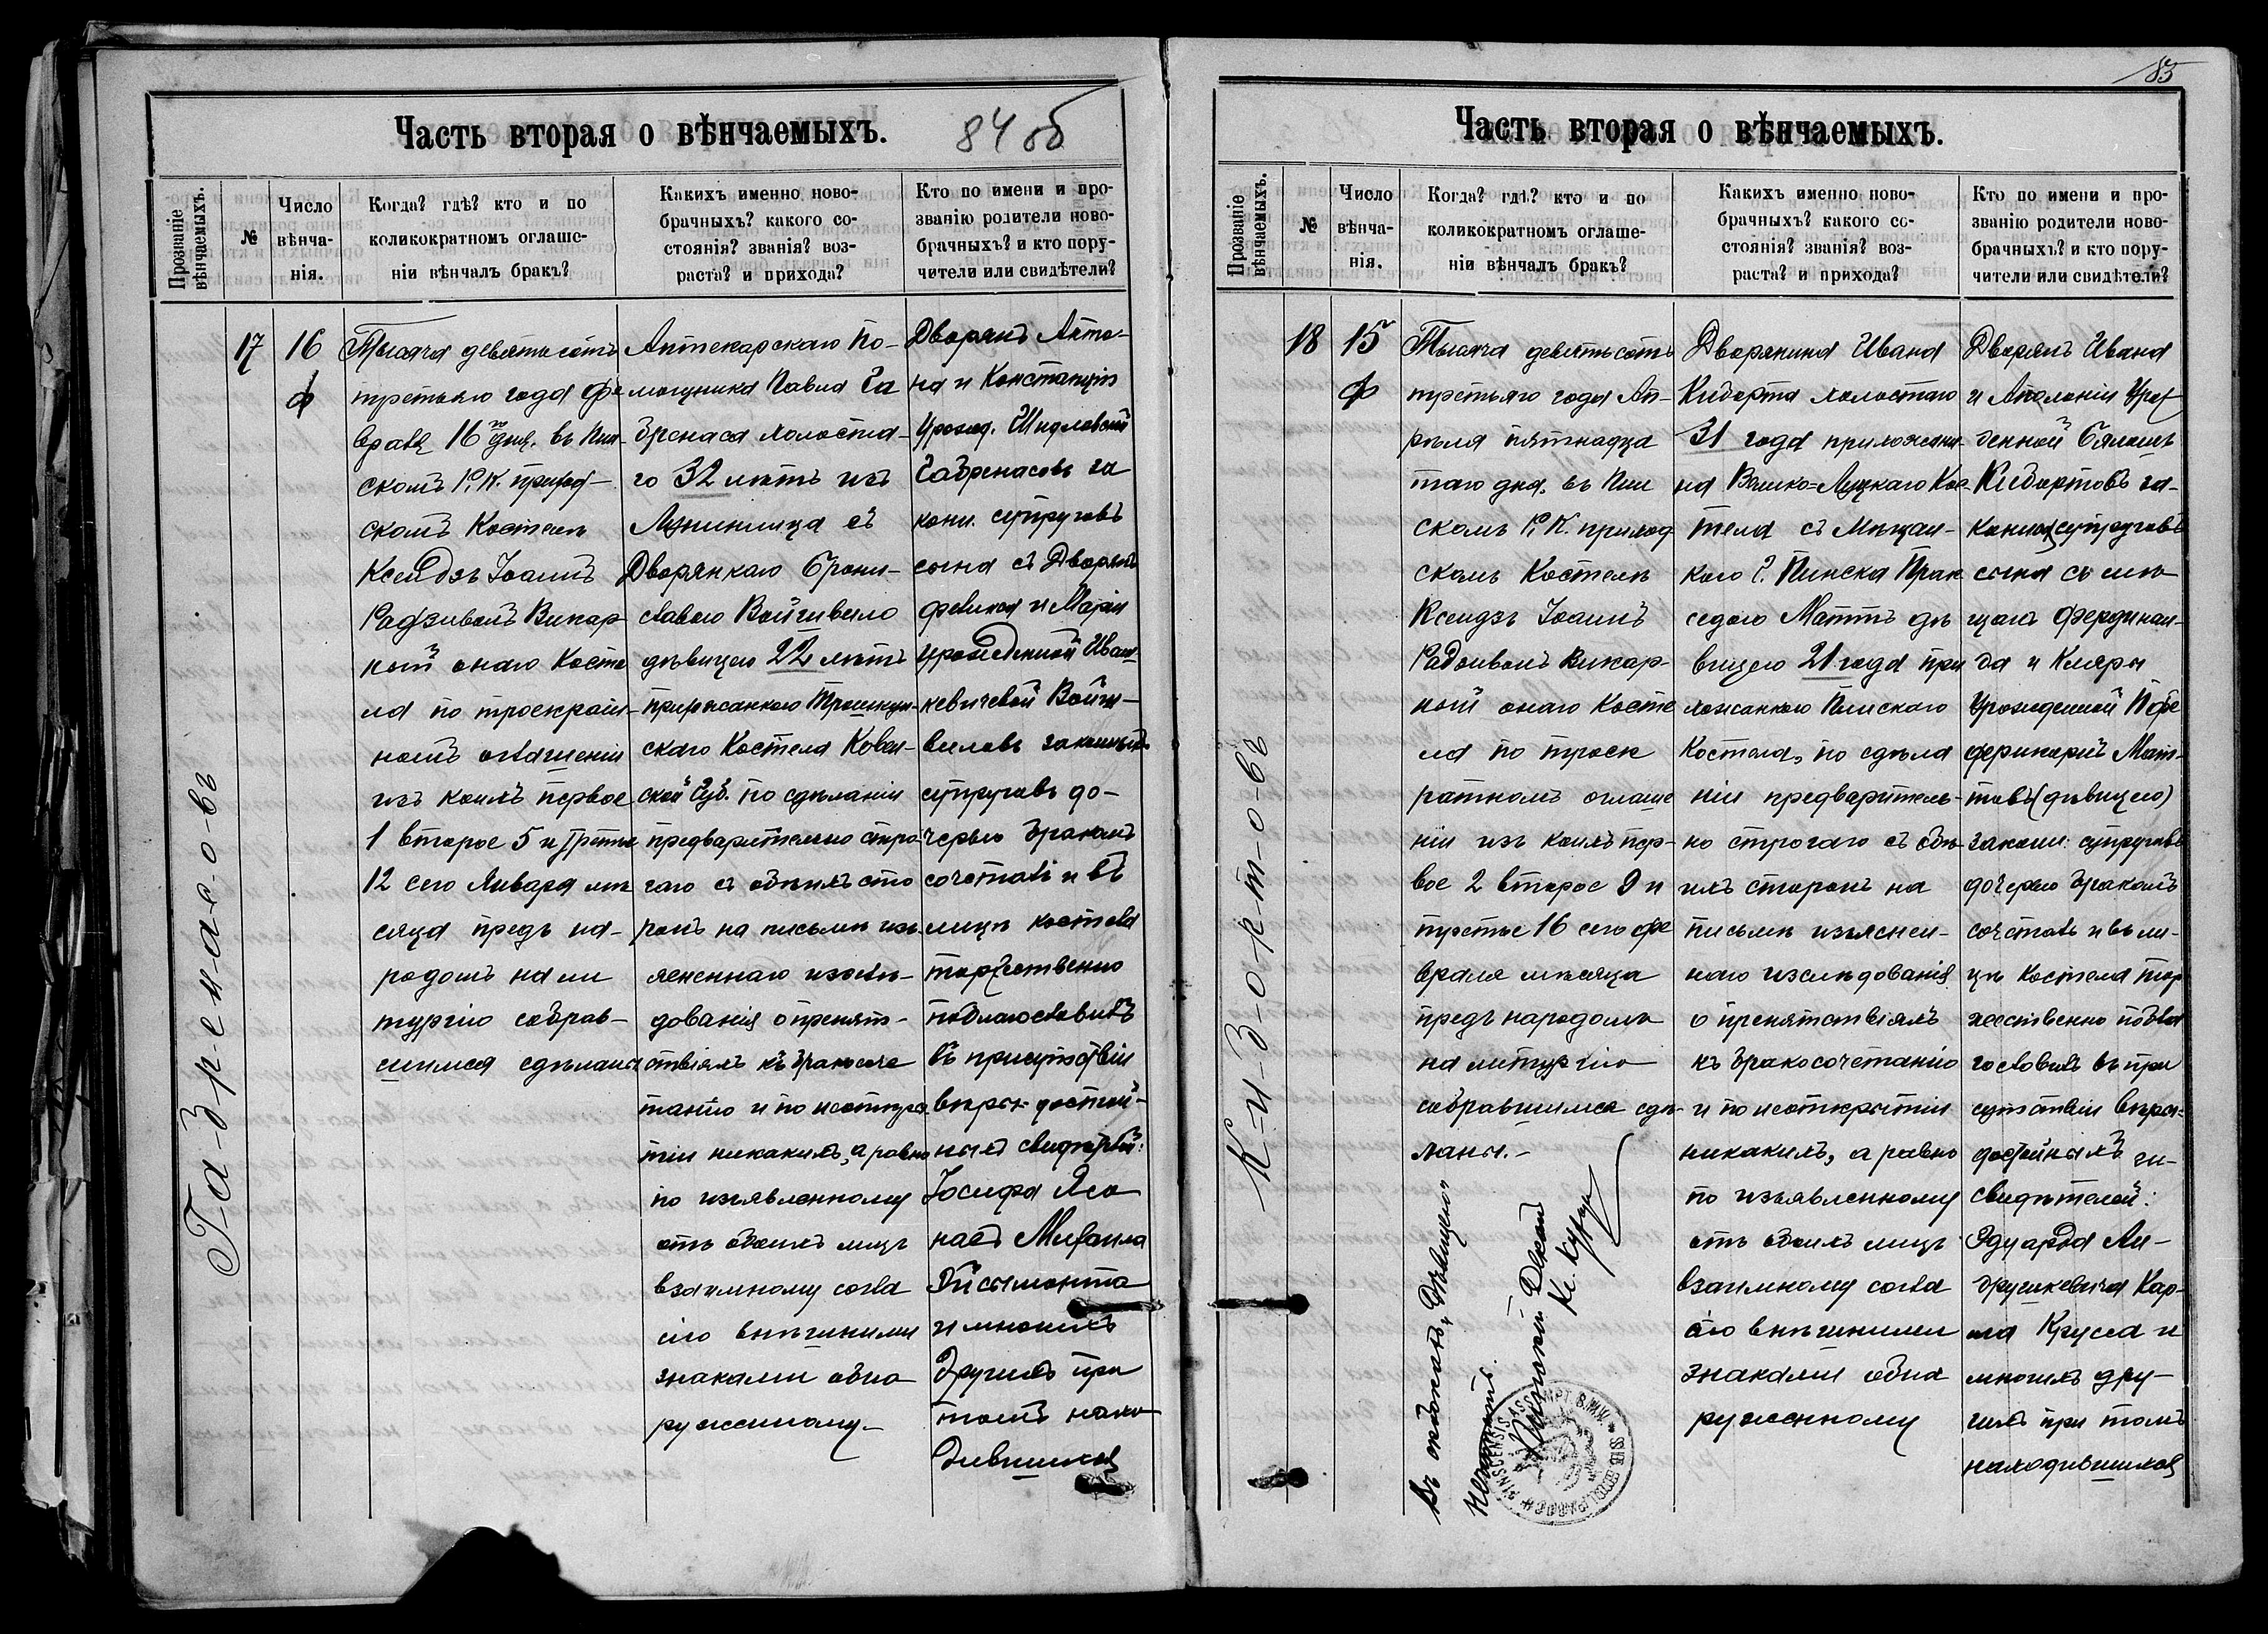 Часть вторая о вѣнчаемыхъ.
84 об
Прозваніе вѣнчаемыхъ.
№
Число вѣнча-
нія.
Когда? гдѣ? кто и по
коликократномъ оглаше-
ніи вѣнчалъ бракъ?
Какихъ именно ново-
брачныхъ? какого со-
стоянія? званія? воз-
раста? и прихода?
Кто по имени и про-
званію родители ново-
брачныхъ? и кто пору-
чители или свидѣтели?
Га-б-р-е-н-а-с-о-въ
17
16
ф
Тысяча девятьсотъ
третьяго года фе
враля 16 дня. въ Пин-
скомъ Р. К. приход-
скомъ Костелѣ
Ксендзъ Іоаннъ
Радзивалъ Викар
ный онаго Косте
ла по троекрат-
номъ оглашеніи
изъ коихъ первое
1 второе 5 и третье
12 сего Января мѣ
сяца предъ на-
родомъ на ли
тургію собрав-
шимся сдѣланы
Аптекарскаго По-
мощника Павла Га
бренаса холоста-
го 32 лѣтъ изъ
Лунинца съ
Дворянкою Брони-
славою Войшвило
дѣвицею 22 лѣтъ
прихожанкою Трашкун-
скаго Костела Ковен-
ской Губ. по сдѣланіи
предварительно стро-
гаго съ обѣихъ сто
ронъ на письмѣ изъ-
ясненнаго изслѣ-
дованія о препят-
ствіяхъ къ бракосоче
танію и по неоткры
тіи никакихъ, а равно
по изъявленному
отъ обоихъ лицъ
взаимному согла
сію внѣшними
знаками обна
руженному
Дворянъ Анто-
на и Констанціи
Урожд. Шидловской
Габренасовъ за
конн. супруговъ
сына съ Дворянъ
Феликса и Маріи
урожденной Иваш-
кевичевой Войш-
виловъ законныхъ
супруговъ до-
черью бракомъ
сочеталъ и въ
лицѣ костела
торжественно
поблагословилъ
въ присутствіи
вѣры достой-
ныхъ свидѣтелей:
Іосифа Ясо
наса Михаила
и многихъ
другихъ при
томъ нахо
дившихся
83
Часть вторая о вѣнчаемыхъ.
Прозваніе вѣнчаемыхъ.
№
Число вѣнча-
нія.
Когда? гдѣ? кто и по
коликократномъ оглаше-
ніи вѣнчалъ бракъ?
Какихъ именно ново-
брачныхъ? какого со-
стоянія? званія? воз-
раста? и прихода?
Кто по имени и про-
званію родители ново-
брачныхъ? и кто пору-
чители или свидѣтели?
К-и-б-о-р-т-о-въ
18
15
ф
Тысяча девятьсотъ
третьяго года Ап-
рѣля пятнадца
таго дня. въ Пин
скомъ Р. К. приход
скомъ Костелѣ
Ксендзъ Іоаннъ
Радзивалъ Викар-
ный онаго Косте
ла по троек
ратномъ оглаше
ніи изъ коихъ пер-
вое 2 второе 9 и
третье 16 сего фе
враля мѣсяца
предъ народомъ
на литургію
собравшимся сдѣ-
ланы.-
Дворянина Ивана
Киборта холостаго
31 года прихожани-
на Велико-Луцкаго Кос-
тела съ Мѣщан-
кою г. Пинска Прак
седою Маттъ дѣ
вицею 21 года при
хожанкою Пинскаго
Костела, по сдѣла
ніи предваритель-
но строгаго съ обѣ-
ихъ сторонъ на
письмѣ изъяснен-
наго изслѣдованія
о препятствіяхъ
къ бракосочетанію
и по неоткрытіи
никакихъ, а равно
по изъявленному
отъ обоихъ лицъ
взаимному согла
сію внѣшними
знаками обна
руженному
Дворянъ Ивана
и Аполоніи Урож
денной
Кибортовъ за-
конныхъ супруговъ
сына съ мѣ
щанъ Фердинан-
да и Клары
Урожденной
Мат-
товъ (дѣвицею)
законн. супруговъ
дочерью бракомъ
сочеталъ и въ ли-
цѣ Костела тор
жественно побла
гословилъ въ при
сутствіи вѣры-
достойныхъ
свидѣтелей:
Эдуарда Ан-
друшкевича Кар-
ла Круса и
многихъ дру-
гихъ при томъ
находившихся
Пинскій Деканъ